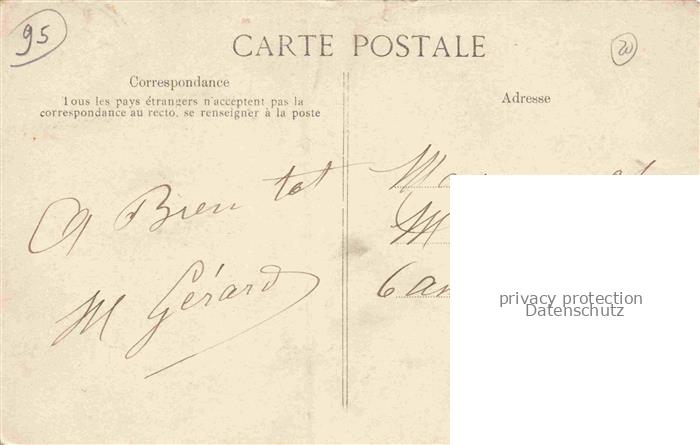 95
CARTE POSTALE
Correspondance
Tous les pays étrangers n'acceptent pas la
correspondance au recto, se renseigner à la poste
A Bien tot
M Gérard
Adresse
privacy protection
Datenschutz